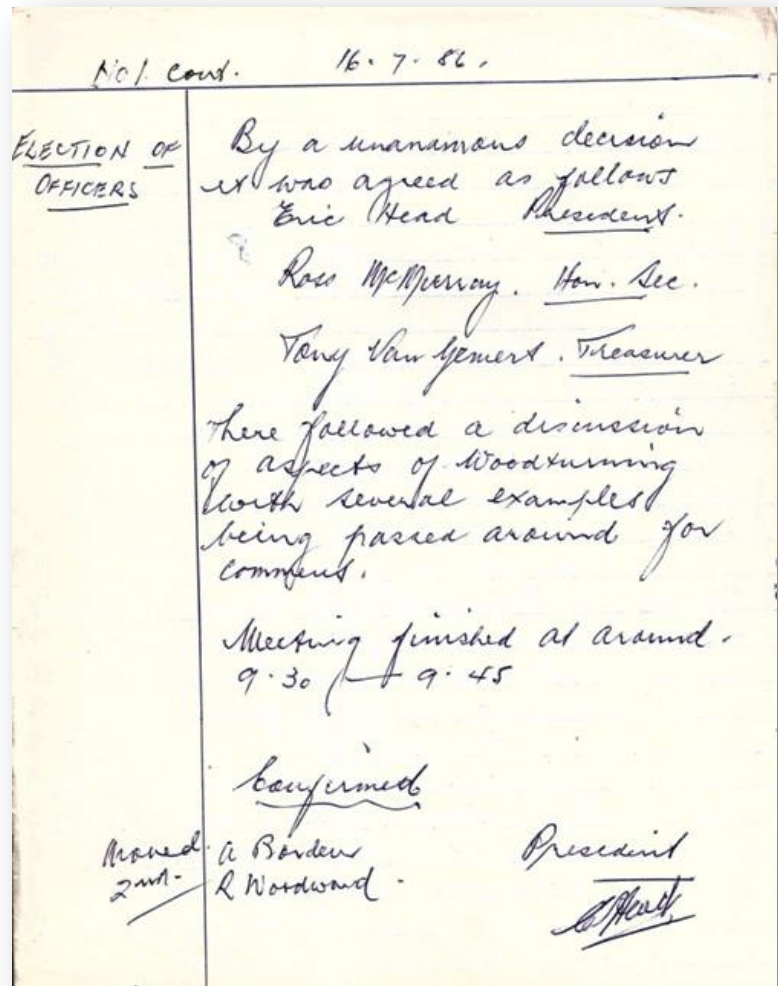 No 1. Cont. 16 . 7 . 86 .
ELECTION OF
OFFICERS
By a unanamous decision
it was agreed as follows
Eric Head President.
Ross McMurray. Hon. Sec.
Tony Van Gemert. Treasurer
There followed a discussion
of aspects of Woodturning
with several examples
being passed around for
comment.
Meeting finished at around.
9.30 — 9.45
Confirmed
Moved. A President
2nd. R Woodward.